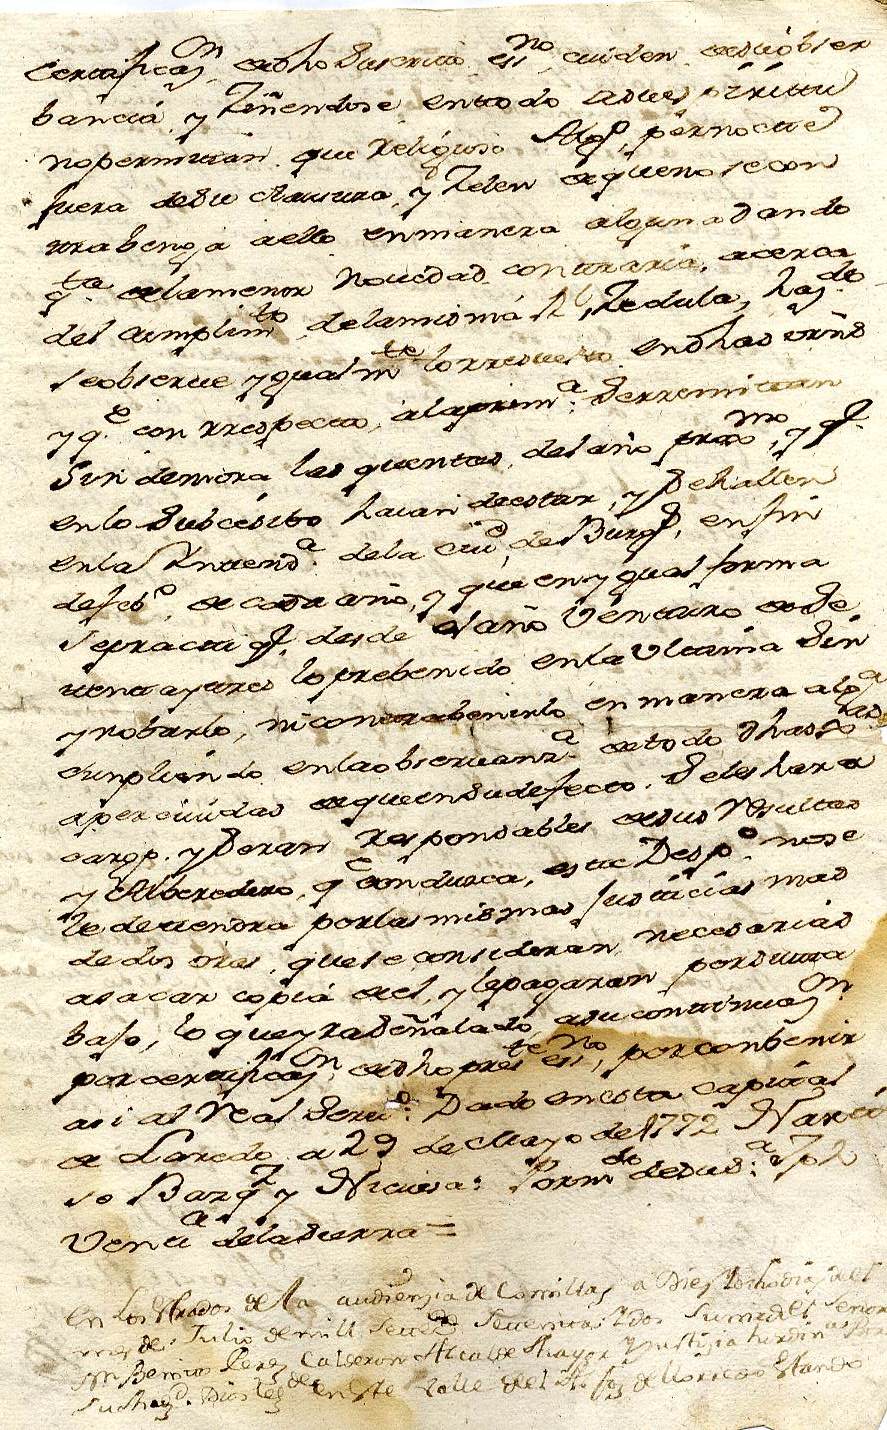 Certificaon, de dho Suscrito essno, cuiden de su obser
bancia, y Ziñendose en todo a su espiritu
no permitan que Religioso Algo, pernocte
fuera de su clausura, y Zelen de que no se con
trabenga a ello en manera alguna dando
qta de la menor Novedad contraria, acerca
del cumplimto de la misma Rl Zedula, haze
se observe yqualmte lo rrespuesto en dhas orns
y qe con rrespecto, a la prima: Serremitan
Sin demora las quentas, del año prxmo, y qe
en lo Subcesibo hacan de estar, y Se hallen
en la Yntenda: de la ciud, de Burgs, en fin
de febo de cada año, y que en yqual forma
se practiqe desde el año Venturo de Se
tenta y tres lo prebenido en la Ultima Sin
ynobarlo, ni contrabenirlo en manera alga
cumpliendo en la observanza de todo dhas
apercividas de que en su defecto. Se les hara
cargo. y Seran Responsables de sus Resultas
y Al Beredero, qe conduzca, este Despo. no se
le detendra por las mismas Justicias mas
de dos oras, que se consideran necesarias
a sacar copia del, y le pagaran por su tra
bajo, lo que yra Señalado, a su continuaon.
por certificaon de dho preste essno, por conbenir
asi al Real Servo: Dado en esta capital
de Laredo a 29 de Mayo de 1772 Narci
so Barqz y Nicuesa: Por mdo de su sa: Joh
Venta de la Sierra =
En los Estrados de la audienzia de Comillas a Diez Y ocho dias del
mes de Julio de mill Settezs Settenta Y dos Su mrd el Señor
Dn Benito Perez Calderon Alcalde Mayor Y Justizia hordinaria Por
Su Magd. Dios lege en este Valle del Alfoz de lloredo Estando